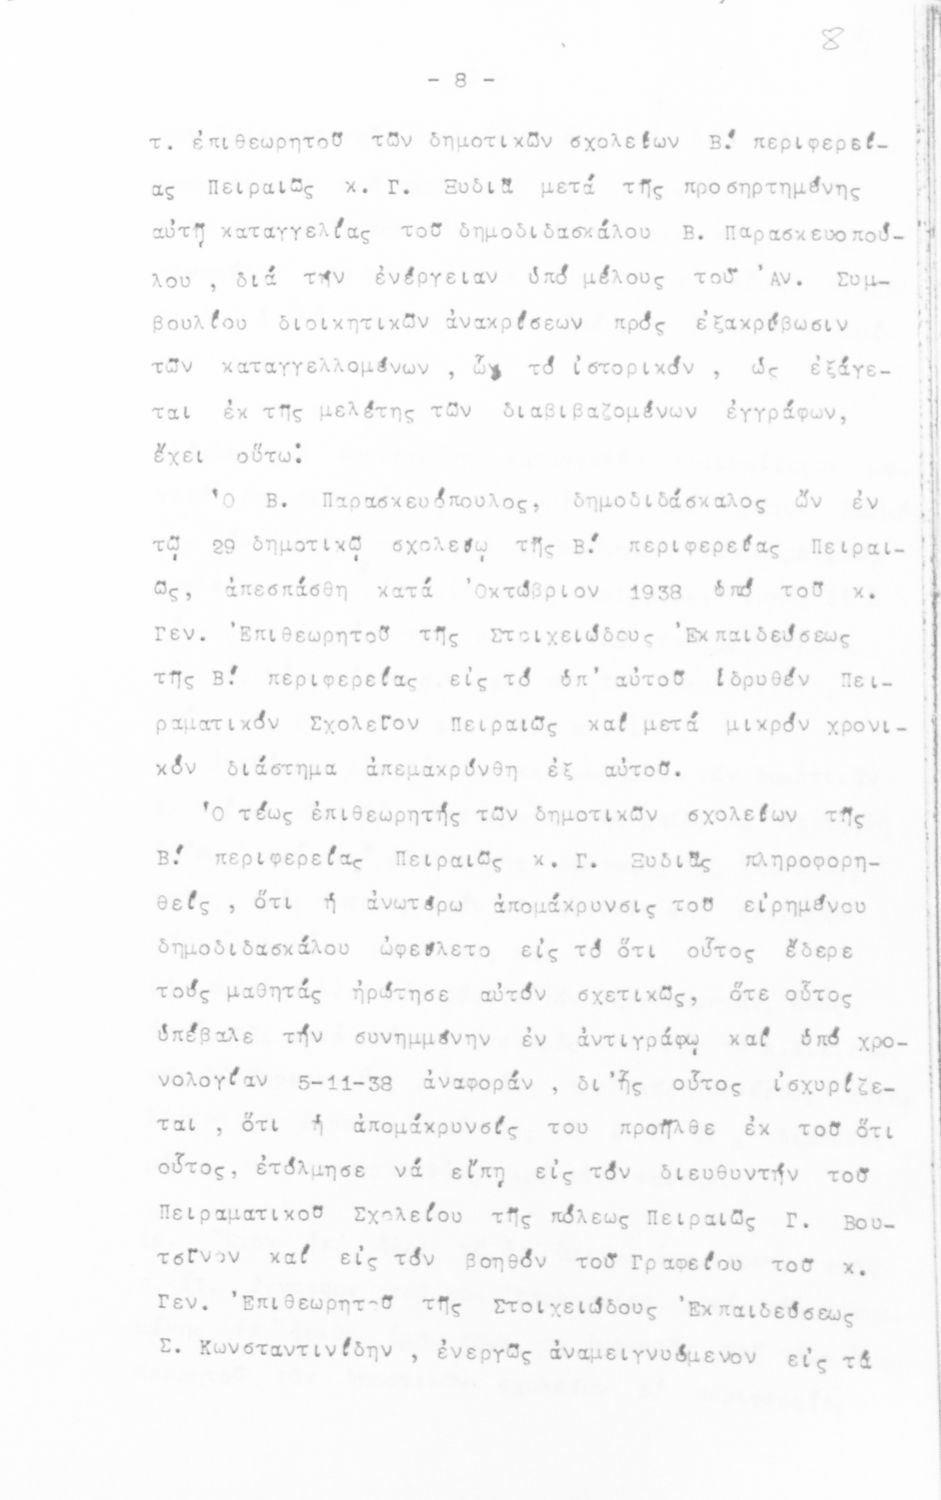 8
- 8 -
τ. ἐπιθεωρητοῦ τῶν δημοτικῶν σχολείων Β.' περιφερεί-
ας Πειραιῶς κ. Γ. Ξυδιᾶ μετά τῆς προσηρτημένης
αὐτῇ καταγγελίας τοῦ δημοδιδασκάλου Β. Παρασκευοπού-
λου , διά τήν ἐνέργειαν ὑπό μέλους τοῦ Ἀν. Συμ-
βουλίου διοικητικῶν ἀνακρίσεων πρός ἐξακρίβωσιν
τῶν καταγγελλομένων , ὧν τό ἱστορικόν , ὡς ἐξάγε-
ται ἐκ τῆς μελέτης τῶν διαβιβαζομένων ἐγγράφων,
ἔχει οὕτω:
Ὁ Β. Παρασκευόπουλος, δημοδιδάσκαλος ὤν ἐν
τῷ 29 δημοτικῷ σχολείῳ τῆς Β.' περιφερείας Πειραι-
ῶς, ἀπεσπάσθη κατά Ὀκτώβριον 1938 ὑπό τοῦ κ.
Γεν. Ἐπιθεωρητοῦ τῆς Στοιχειώδους Ἐκπαιδεύσεως
τῆς Β.' περιφερείας εἰς τό ὑπ' αὐτοῦ ἱδρυθέν Πει-
ραματικόν Σχολεῖον Πειραιῶς καί μετά μικρόν χρονι-
κόν διάστημα ἀπεμακρύνθη ἐξ αὐτοῦ.
Ὁ τέως ἐπιθεωρητής τῶν δημοτικῶν σχολείων τῆς
Β.' περιφερείας Πειραιῶς κ. Γ. Ξυδιᾶς πληροφορη-
θείς , ὅτι ἡ ἀνωτέρω ἀπομάκρυνσις τοῦ εἰρημένου
δημοδιδασκάλου ὠφείλετο εἰς τό ὅτι οὗτος ἔδερε
τούς μαθητάς ἠρώτησε αὐτόν σχετικῶς, ὅτε οὗτος
ὑπέβαλε τήν συνημμένην ἐν ἀντιγράφῳ καί ὑπό χρο-
νολογίαν 5-11-38 ἀναφοράν , δι' ἧς οὗτος ἰσχυρίζε-
ται , ὅτι ἡ ἀπομάκρυνσίς του προῆλθε ἐκ τοῦ ὅτι
οὗτος, ἐτόλμησε νά εἴπῃ εἰς τόν διευθυντήν τοῦ
Πειραματικοῦ Σχολείου τῆς πόλεως Πειραιῶς Γ. Βου-
τσῖνον καί εἰς τόν βοηθόν τοῦ Γραφείου τοῦ κ.
Γεν. Ἐπιθεωρητοῦ τῆς Στοιχειώδους Ἐκπαιδεύσεως
Σ. Κωνσταντινίδην , ἐνεργῶς ἀναμειγνυόμενον εἰς τά